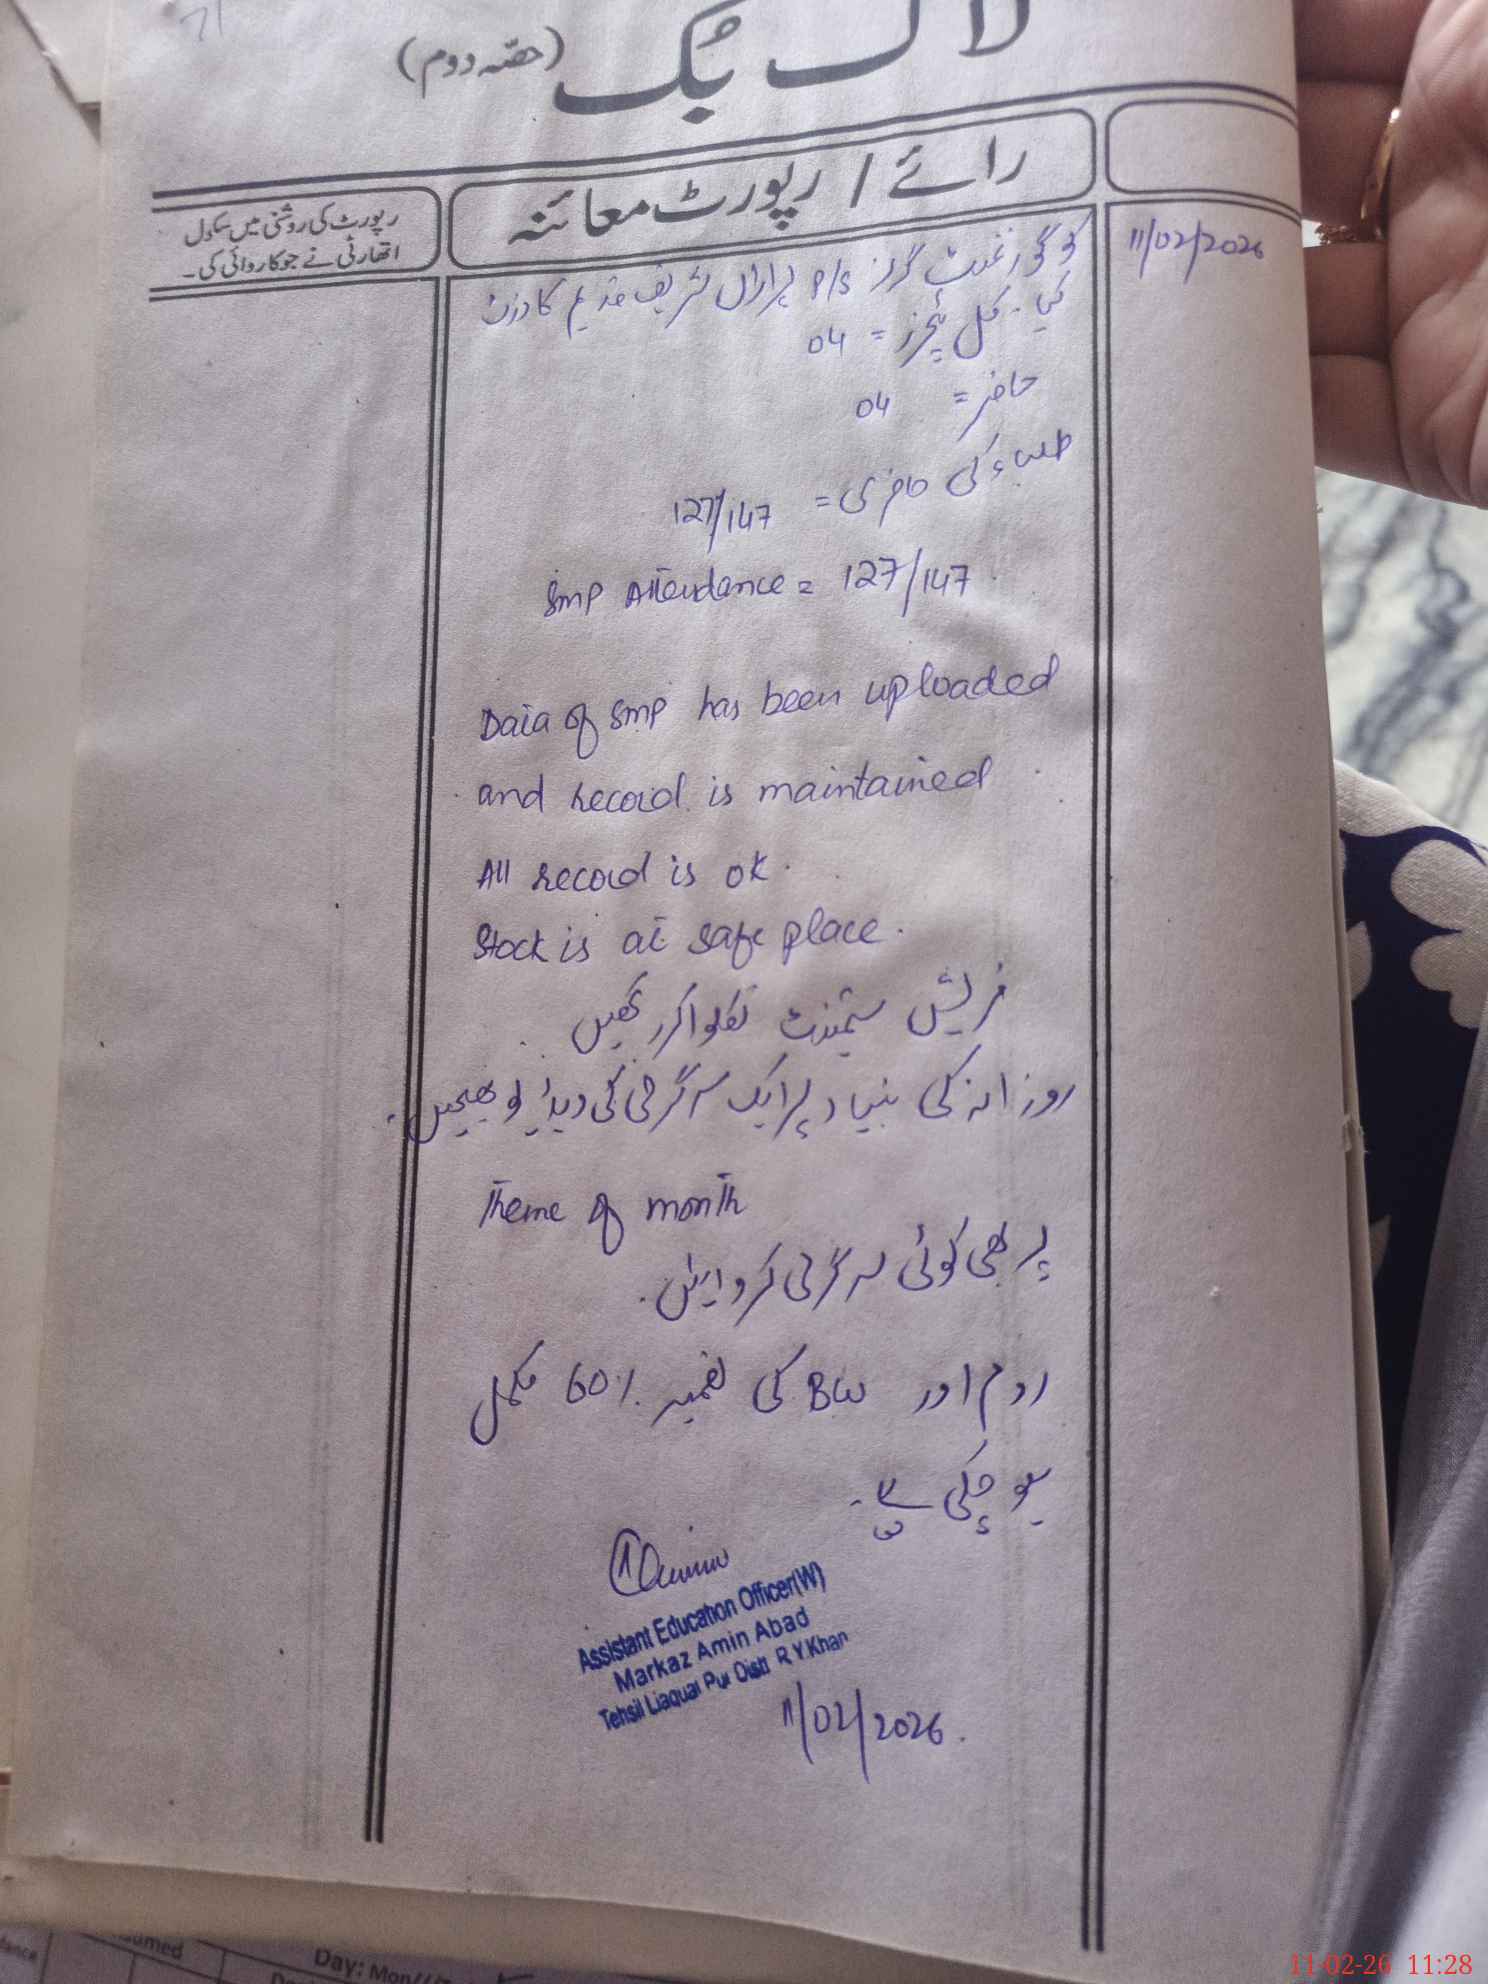 لاگ بُک (حصّہ دوم)
رائے / رپورٹ معائنہ
رپورٹ کی روشنی میں سکول
اتھارٹی نے جو کاروائی کی۔
11/02/2026
کو گورنمنٹ گرلز P/S پراراں شریف قدیم کا وزٹ
کیا۔ کل ٹیچرز = 04
حاضر = 04
طلباء کی حاضری = 127/147
SMP Attendance = 127/147
Data of SMP has been uploaded
and record is maintained
All record is ok.
Stock is at safe place.
فریش سٹیمنٹ نکلوا کر رکھیں
روزانہ کی بنیاد پر ایک سرگرمی کی ویڈیو بھیجیں۔
Theme of month
پر بھی کوئی سرگرمی کروائیں۔
روم اور BW کی تعمیر 60% مکمل
ہو چکی ہے۔
Assistant Education Officer(W)
Markaz Amin Abad
Tehsil Liaquat Pur Distt R.Y.Khan
11/02/2026.
Day: Mon
11-02-26 11:28